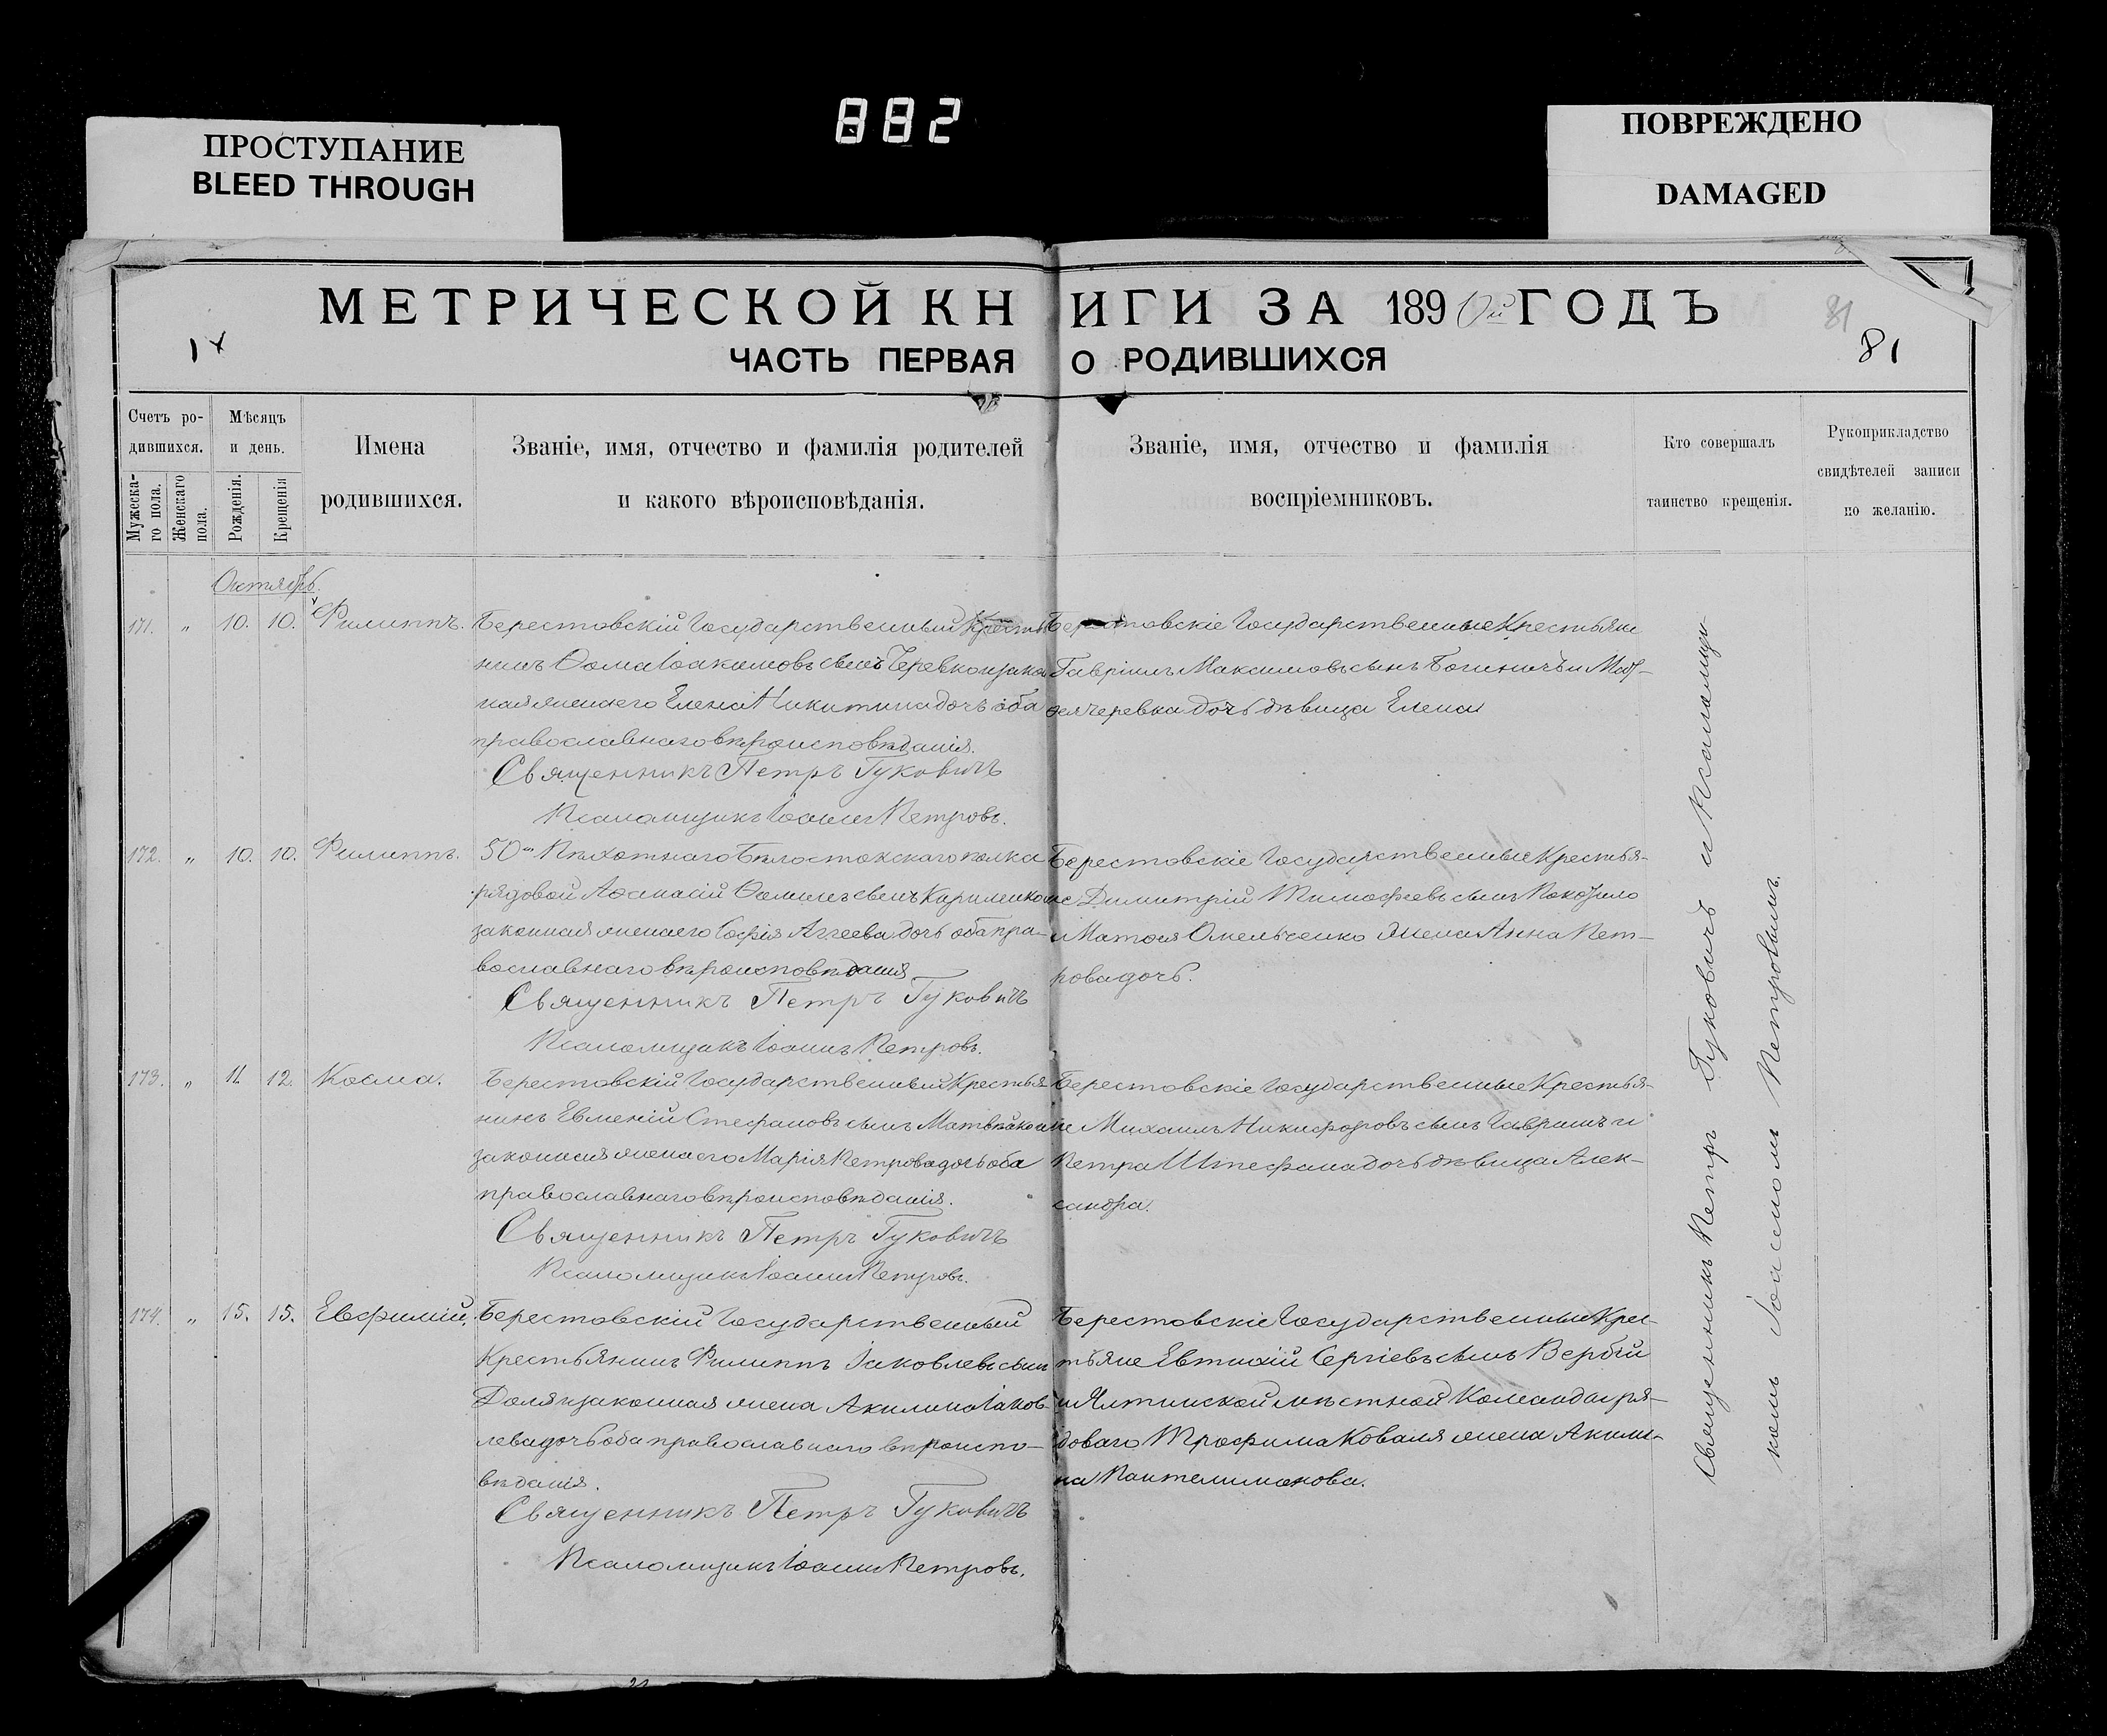 882
ПРОСТУПАНИЕ
BLEED THROUGH
ПОВРЕЖДЕНО
DAMAGED
МЕТРИЧЕСКОЙ КНИГИ ЗА 1890й ГОДЪ
ЧАСТЬ ПЕРВАЯ О РОДИВШИХСЯ
81
81
Счетъ ро-
дившихся.
Мужеска-
го пола.
Женскаго
пола.
Мѣсяцъ
и день.
Рожденія.
Крещенія
Имена
родившихся.
Званіе, имя, отчество и фамилія родителей
и какого вѣроисповѣданія.
Званіе, имя, отчество и фамилія
воспріемниковъ.
Кто совершалъ
таинство крещенія.
Рукоприкладство
свидѣтелей записи
по желанію.
Октябрь.
171. " 10. 10. Филиппъ.
Берестовскій Государственный Крестья
нинъ Ѳома Іоакимовъ сынъ Черевко и закон
ная жена его Елена Никитина дочь оба
православнаго вѣроисповѣданія.
Священникъ Петръ Гуковичъ
Псаломщикъ Іоаннъ Петровъ.
Берестовскіе Государственные Крестьяне
Гавріилъ Максимовъ сынъ и
Черевка дочь дѣвица Елена
172. " 10. 10. Филиппъ.
50го Пѣхотнаго Бѣлостокскаго полка
рядовой Аѳанасій сынъ Кириленко и
законная жена его Софія Аггеева дочь оба пра-
вославнаго вѣроисповѣданія
Священникъ Петръ Гуковичъ
Псаломщикъ Іоаннъ Петровъ.
Берестовскіе Государственные Крестья-
не Димитрій Тимофеевъ сынъ
и Матѳея Омельченко жена Анна Пет-
рова дочь.
173. " 11. 12. Косма.
Берестовскій Государственный Крестья-
нинъ Евменій Стефановъ сынъ Матвѣйко и
законная жена его Марія Петрова дочь оба
православнаго вѣроисповѣданія.
Священникъ Петръ Гуковичъ
Псаломщикъ Іоаннъ Петровъ.
Берестовскіе Государственные Крестья-
не Михаилъ Никифоровъ сынъ Гавришъ и
Петра Штефана дочь дѣвица Алек-
сандра.
174. " 15. 15. Евфимій.
Берестовскій Государственный
Крестьянинъ Филиппъ Іаковлевъ сынъ
Доля и законная жена Акилина Іаков-
лева дочь оба православнаго вѣроиспо-
вѣданія.
Священникъ Петръ Гуковичъ
Псаломщикъ Іоаннъ Петровъ.
Берестовскіе Государственные Крес-
тьяне Евтихій Сергіевъ сынъ Вербій
и Ялтинской мѣстной Команды ря-
доваго Трофима Коваля жена Акили-
на Пантелимонова.
Священникъ Петръ Гуковичъ и Псаломщи-
комъ Іоанномъ Петровымъ.